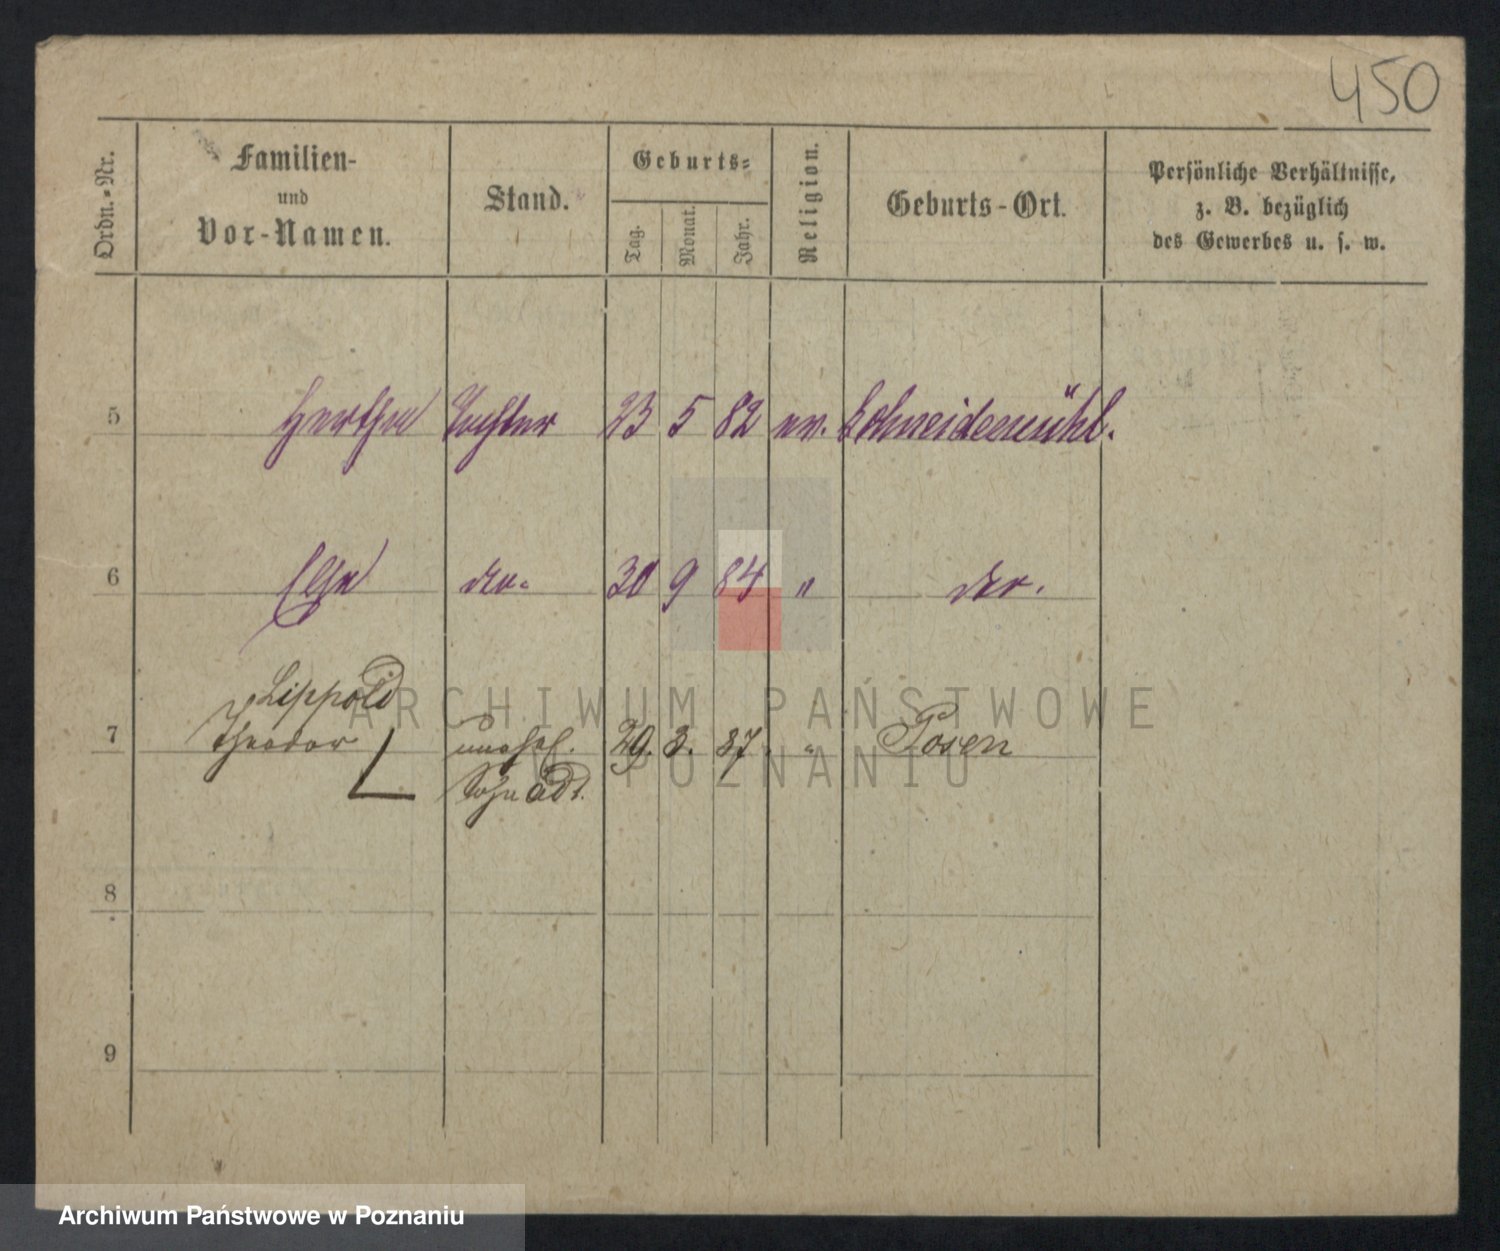 450
Ordn.-Nr.
Familien-
und
Vor-Namen.
Stand.
Geburts-
Tag.
Monat.
Jahr.
Religion.
Geburts-Ort.
Persönliche Verhältnisse,
z. B. bezüglich
des Gewerbes u. s. w.
5 Hertha Tochter 23 5 82 ev. Schneidemühl.
6 Else 30 9 84 "
Lippold
7 Theodor unehel. 29. 3. 87. " Posen
Sohn ad 1.
8
9
ARCHIWUM PAŃSTWOWE
W POZNANIU
Archiwum Państwowe w Poznaniu